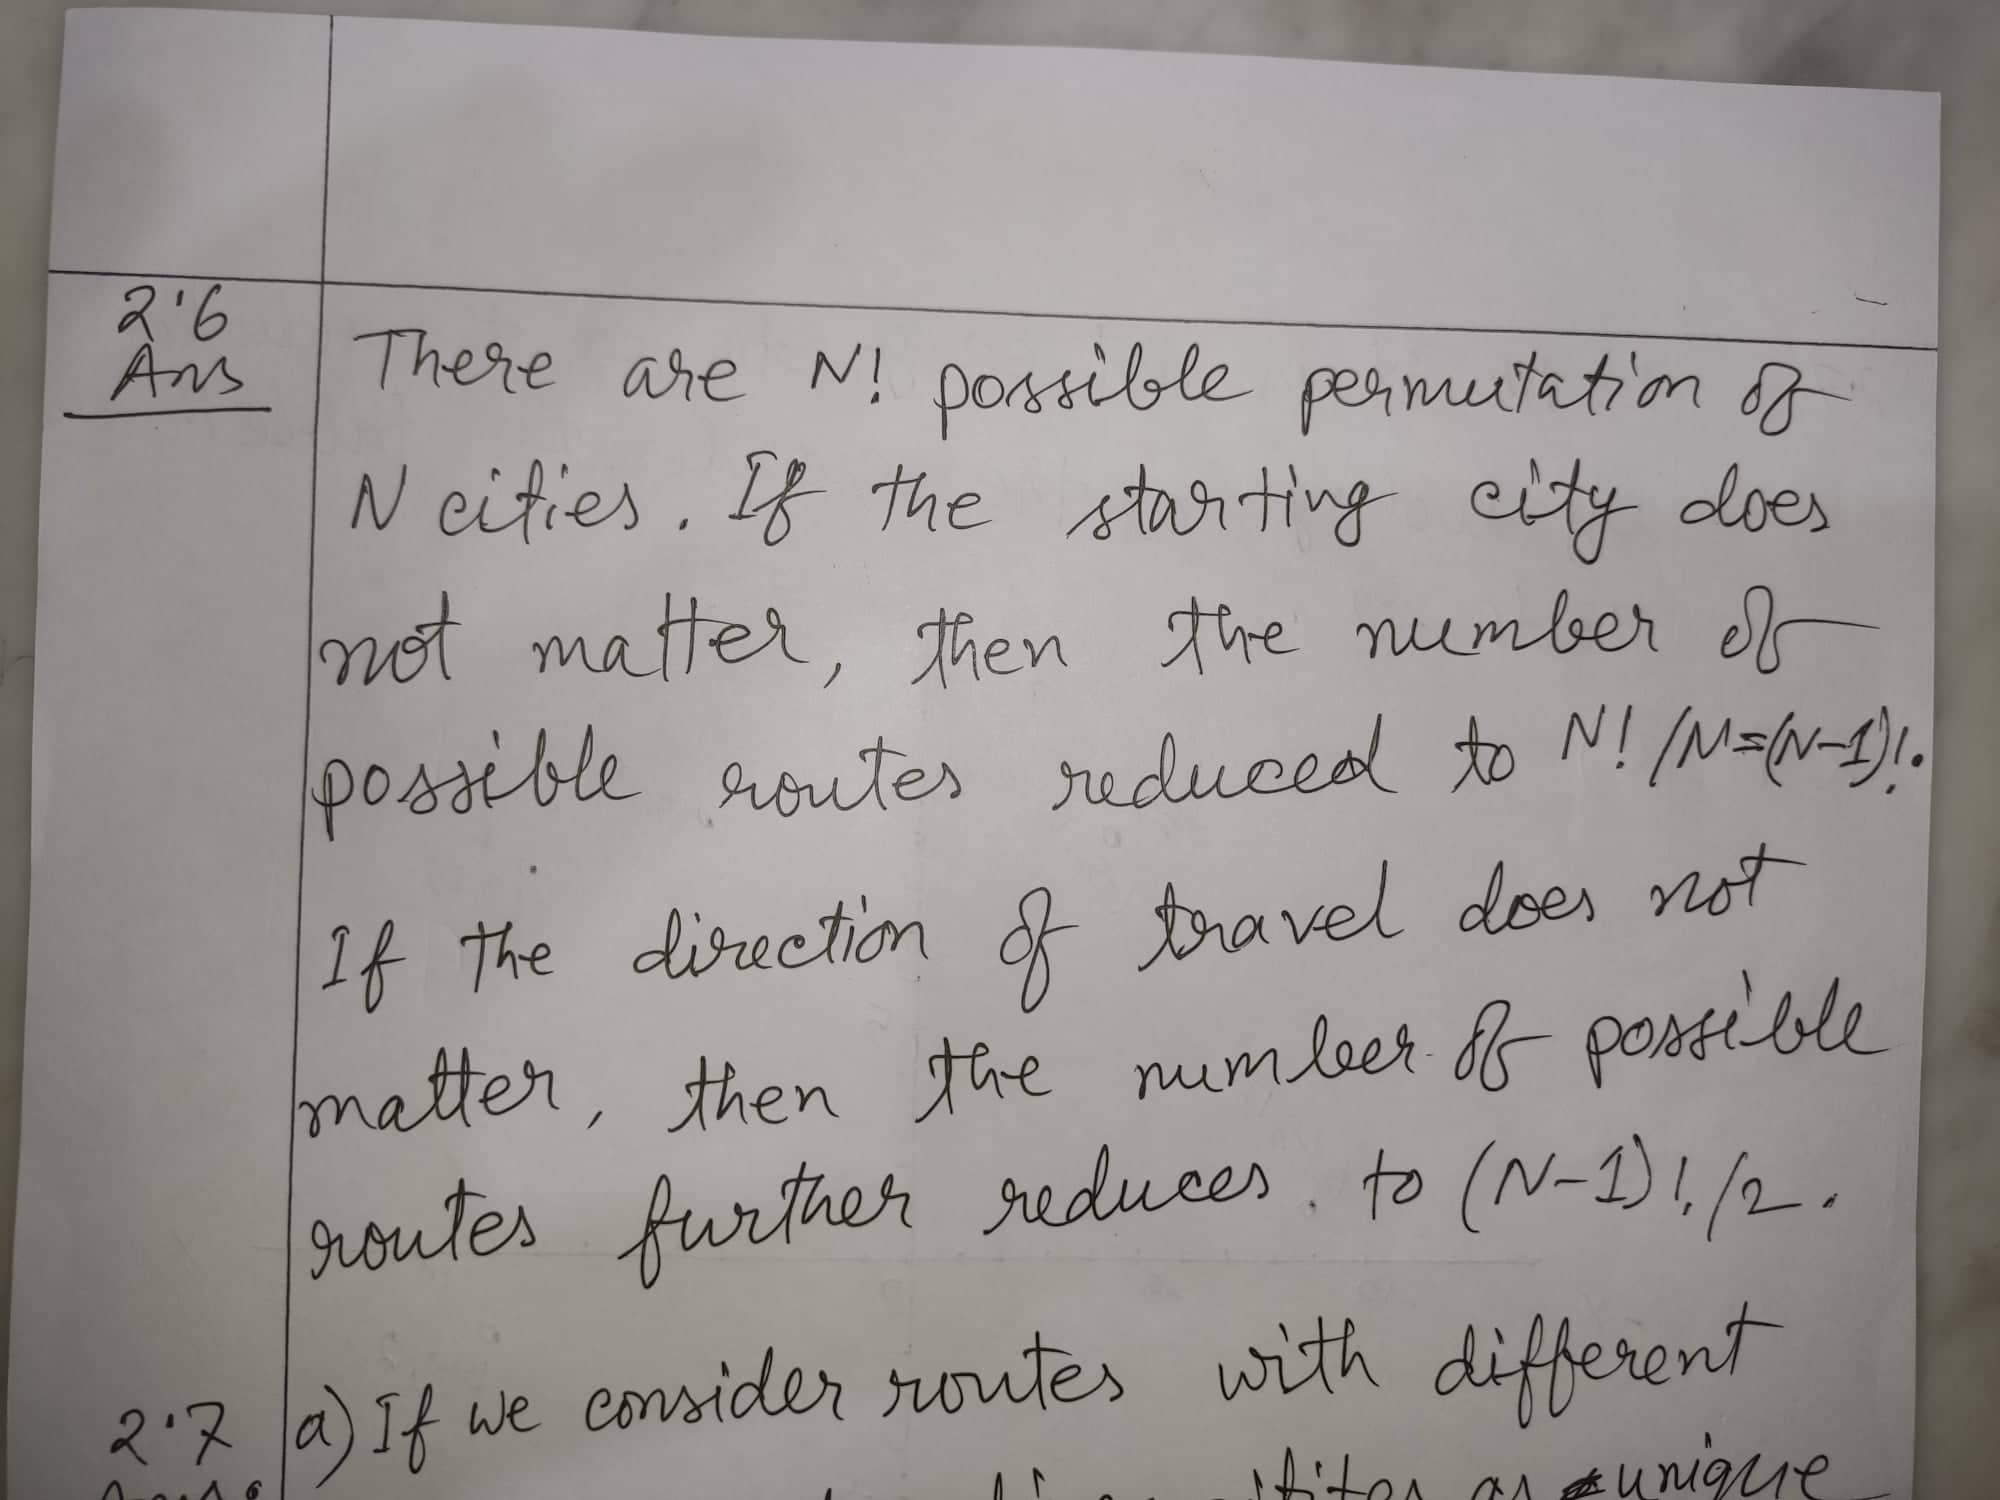 2.6
Ans
There are N! possible permutation of
N cities. If the starting city does
not matter, then the number of
possible routes reduced to N!/N=(N-1)!.
If the direction of travel does not
matter, then the number of possible
routes further reduces. to (N-1)!/2.
2.7 a) If we consider routes with different
as unique